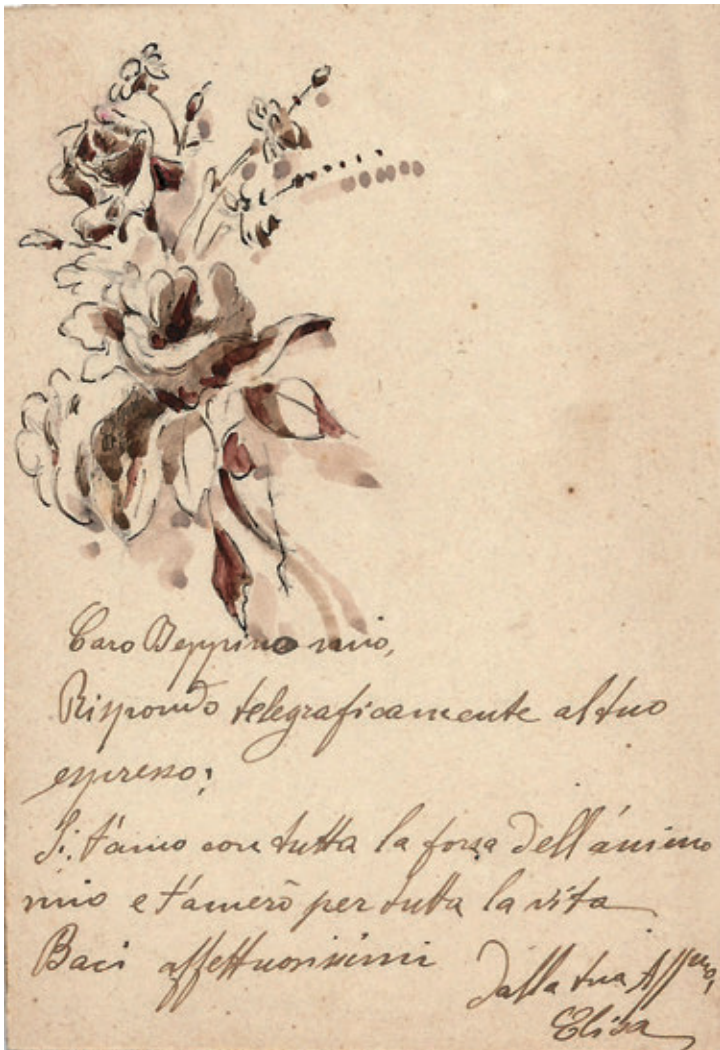 Caro Beppino mio,
Rispondo telegraficamente al tuo
espresso:
Si: t'amo con tutta la forza dell'ánimo
mio e t'amerò per tutta la vita
Baci affettuosissimi
dalla tua Aff.ma,
Elisa